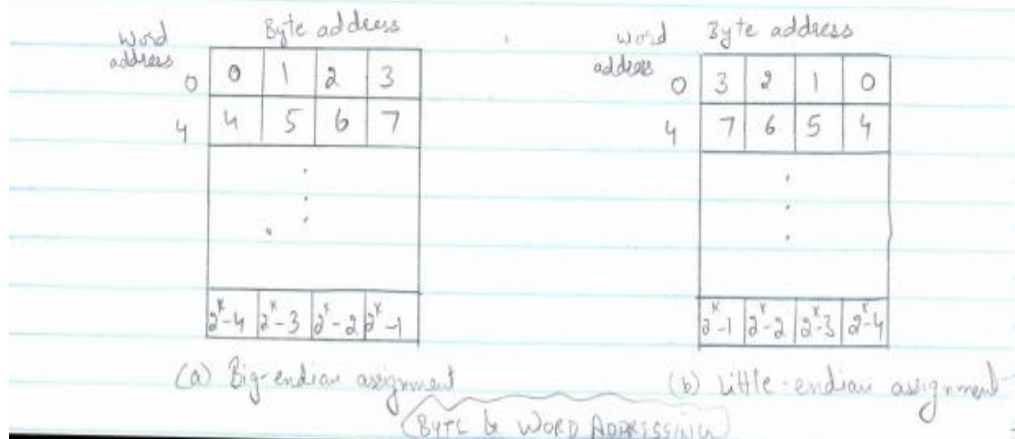 Word address Byte address
0 0 1 2 3
4 4 5 6 7
2^k-4 2^k-3 2^k-2 2^k-1
(a) Big-endian assignment
word address Byte address
0 3 2 1 0
4 7 6 5 4
2^k-1 2^k-2 2^k-3 2^k-4
(b) Little-endian assignment
BYTE & WORD ADDRESSING